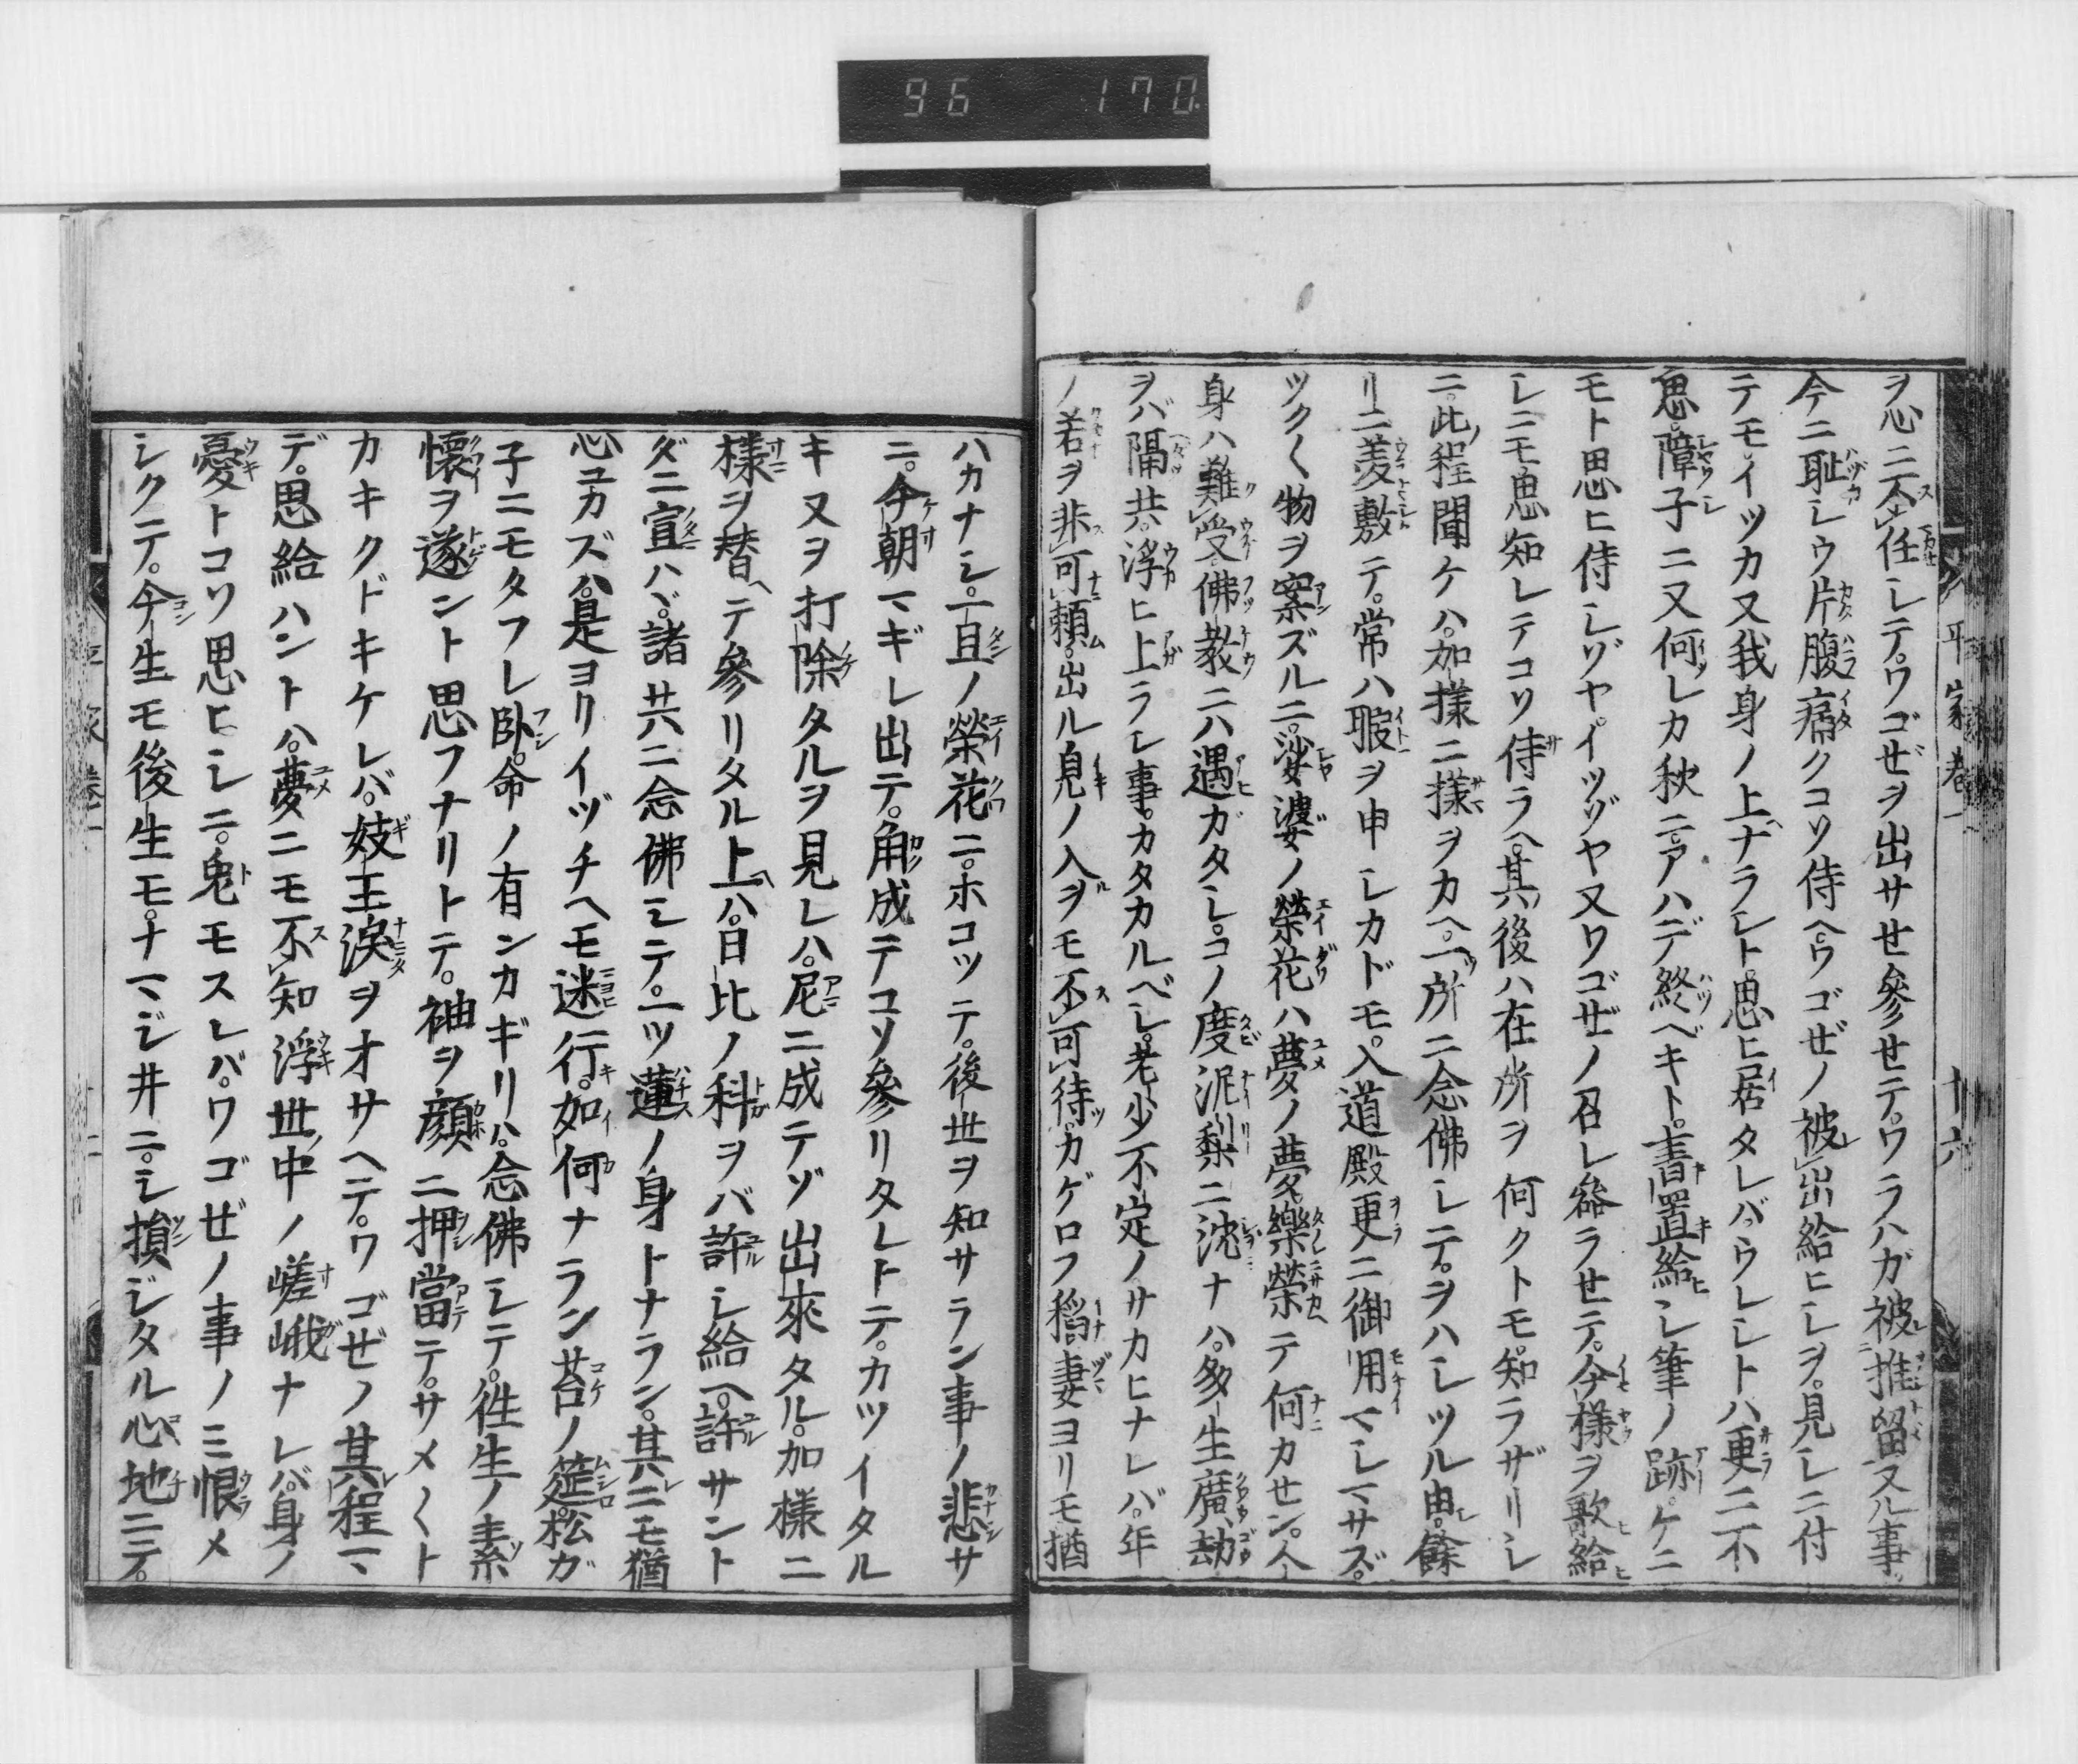 96 170
平家巻一 十六
ヲ心ニ不任シテ。ワゴゼヲ出サセ参セテ。ワラハガ被推留ヌル事。
今ニ耻シウ片腹痛クコソ侍ヘ。ワゴゼノ被出給ヒシヲ。見シニ付
テモ。イツカ又我身ノ上ナラント。思ヒ居タレバ。ウレシトハ更ニ不
思。障子ニ又何レカ秋ニ。アハデ終ベキト。書置給ヒシ筆ノ跡。ゲニ
モト思ヒ侍シゾヤ。イツゾヤ又ワゴゼノ召レ参ラセテ。今様ヲ歌給ヒ
シニモ思知レテコソ侍ラヘ。其後ハ在所ヲ何クトモ。知ラザリシ
ニ。此程聞ケハ。加様ニ様ヲカヘ。一所ニ念佛シテ。ヲハシツル由。餘
リニ羨敷テ。常ハ暇ヲ申シカドモ。入道殿更ニ御用マシマサズ。
ツク〱物ヲ案ズルニ。娑婆ノ榮花ハ夢ノ夢。樂榮テ何カセン。人
身ハ難受。佛教ニハ遇ガタシ。コノ度泥梨ニ沈ナハ。多生廣劫
ヲバ隔共。浮ヒ上ラン事。カタカルベシ。老少不定ノサカヒナレバ。年
ノ若ヲ非可頼。出ル息ノ入ヲモ不可待。カゲロフ稲妻ヨリモ猶
ハカナシ。一旦ノ榮花ニ。ホコツテ。後世ヲ知サラン事ノ悲サ
ニ。今朝マギレ出テ。角成テコソ参リタレトテ。カツイタル
キヌヲ打除タルヲ見レハ。尼ニ成テゾ出來タル。加様ニ
様ヲ替ヘテ参リタル上ハ。日比ノ科ヲバ許シ給ヘ。許サント
ダニ宣ハヾ。諸共ニ念佛シテ。一ツ蓮ノ身トナラン。其ニモ猶
心ユカズハ。是ヨリイヅチヘモ迷行。如何ナラン苔ノ筵。松ガ
子ニモタフレ卧。命ノ有ンカギリハ。念佛シテ。徃生ノ素
懐ヲ遂ント思フナリトテ。袖ヲ顔ニ押當テ。サメ〱ト
カキクドキケレバ。妓王涙ヲオサヘテ。ワゴゼノ其程マ
デ。思給ハントハ。夢ニモ不知。浮世中ノ嵯峨ナレバ。身ノ
憂トコソ思ヒシニ。兎モスレバ。ワゴゼノ事ノミ恨メ
シクテ。今生モ後生モ。ナマジ井ニ。シ損ジタル心地ニテ。